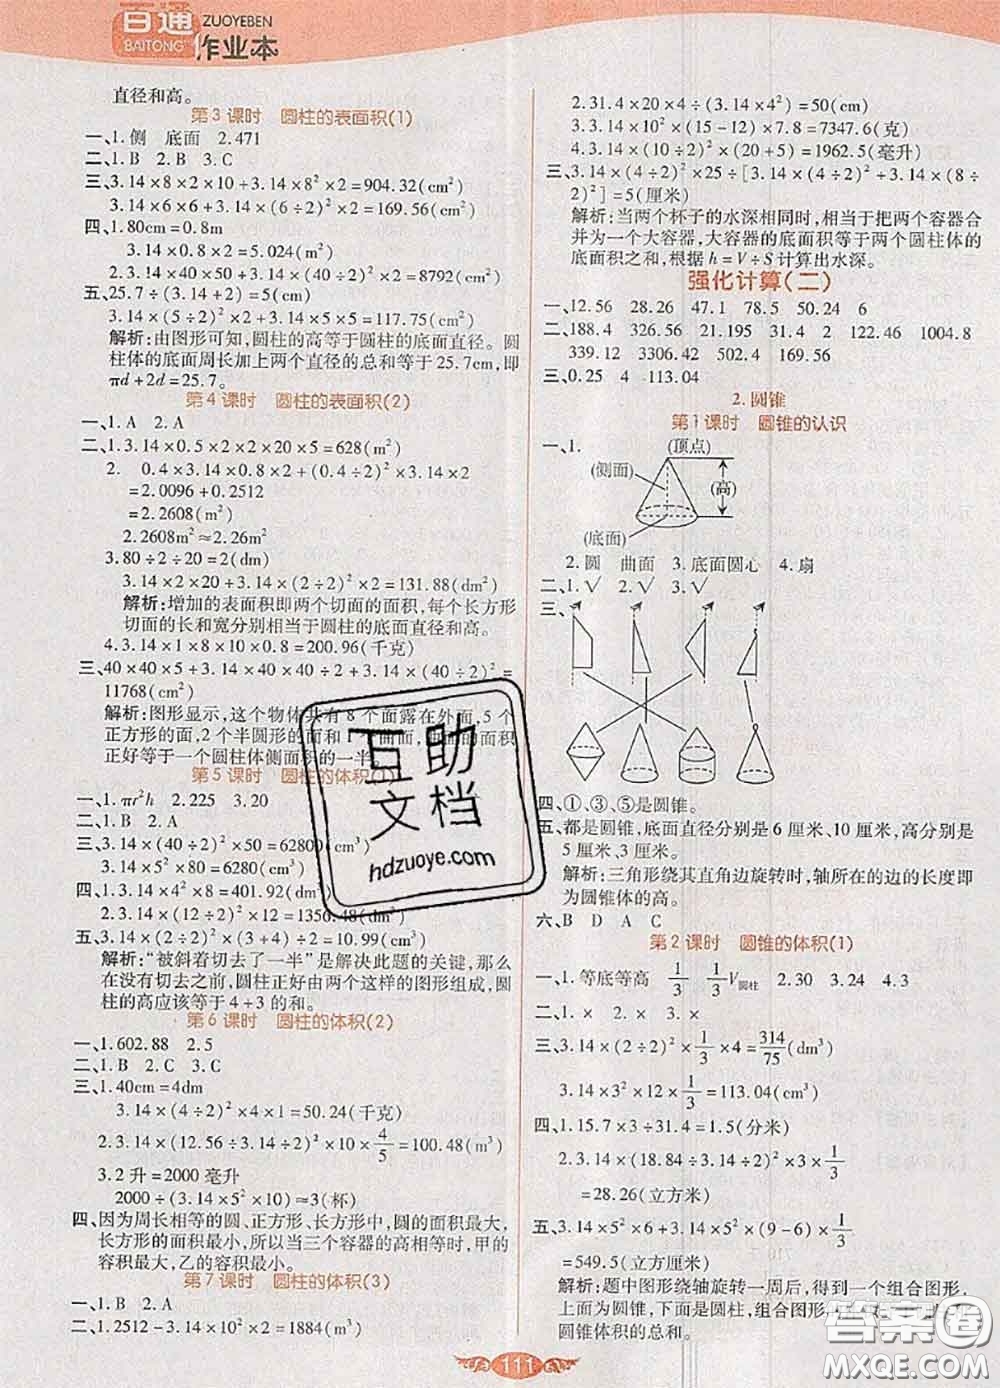 百通
BAITONG
ZUOYEBEN
作业本
直径和高。
第3课时 圆柱的表面积(1)
一、1.侧 底面 2.471
二、1.B 2.B 3.C
三、3.14×8×2×10+3.14×8²×2=904.32(cm²)
3.14×6×6+3.14×(6÷2)²×2=169.56(cm²)
四、1.80cm=0.8m
3.14×0.8×2=5.024(m²)
2.3.14×40×50+3.14×(40÷2)²×2=8792(cm²)
五、25.7÷(3.14+2)=5(cm)
3.14×(5÷2)²×2+3.14×5×5=117.75(cm²)
解析:由图形可知,圆柱的高等于圆柱的底面直径。圆
柱体的底面周长加上两个直径的总和等于25.7cm,即
πd+2d=25.7。
第4课时 圆柱的表面积(2)
一、1.A 2.A
二、1.3.14×0.5×2×2×20×5=628(m²)
2. 0.4×3.14×0.8×2+(0.4÷2)²×3.14×2
=2.0096+0.2512
=2.2608(m²)
2.2608m²≈2.26m²
3.80÷2÷20=2(dm)
3.14×2×20+3.14×(2÷2)²×2=131.88(dm²)
解析:增加的表面积即两个切面的面积,每个长方形
切面的长和宽分别相当于圆柱的底面直径和高。
4.3.14×1×8×10×0.8=200.96(千克)
三、40×40×5+3.14×40×40÷2+3.14×(40÷2)²=
11768(cm²)
解析:图形显示,这个物体共有8个面露在外面,5个
正方形的面,2个半圆形的面和1个曲面,曲面的面积
正好等于一个圆柱体侧面积的一半
第5课时 圆柱的体积(1)
一、1.πr²h 2.225 3.20
二、1.B 2.A
三、1.3.14×(40÷2)²×50=62800(cm³)
2.3.14×5²×80=6280(cm³)
四、1.3.14×4²×8=401.92(dm³)
2.3.14×(12÷2)²×12=1356.48(dm³)
五、3.14×(2÷2)²×(3+4)÷2=10.99(cm³)
解析:“被斜着切去了一半”是解决此题的关键,那么
在没有切去之前,圆柱正好由两个这样的图形组成,圆柱
的高应该等于4+3的和。
第6课时 圆柱的体积(2)
一、1.602.88 2.5
二、1.B 2.A 3.C
三、1.40cm=4dm
3.14×(4÷2)²×4×1=50.24(千克)
2.3.14×(12.56÷3.14÷2)²×10×4/5=100.48(m³)
3.2升=2000毫升
2000÷(3.14×5²×10)≈3(杯)
四、因为周长相等的圆、正方形、长方形中,圆的面积最大,
长方形的面积最小,所以当三个容器的高相等时,甲的
容积最大,乙的容积最小。
第7课时 圆柱的体积(3)
一、1.B 2.A
二、1.2512-3.14×10²×2=1884(m³)
2.31.4×20×4÷(3.14×4²)=50(cm)
3.3.14×10²×(15-12)×7.8=7347.6(克)
4.3.14×(10÷2)²×(20+5)=1962.5(毫升)
三、3.14×(4÷2)²×25÷[3.14×(4÷2)²+3.14×(8÷
2)²]=5(厘米)
解析:当两个杯子的水深相同时,相当于把两个容器合
并为一个大容器,大容器的底面积等于两个圆柱体的
底面积之和,根据h=V÷S计算出水深。
强化计算(二)
一、12.56 28.26 47.1 78.5 50.24 6
二、188.4 326.56 21.195 31.4 2 122.46 1004.8
339.12 3306.42 502.4 169.56
三、0.25 4 113.04
2.圆锥
第1课时 圆锥的认识
一、1.
(顶点)
(侧面)
(高)
(底面)
2.圆 曲面 3.底面圆心 4.扇
二、1.√ 2.√ 3.√
三、
四、①、③、⑤是圆锥。
五、都是圆锥,底面直径分别是6厘米、10厘米,高分别是
5厘米、3厘米。
解析:三角形绕其直角边旋转时,轴所在的边的长度即
为圆锥体的高。
六、B D A C
第2课时 圆锥的体积(1)
一、1.等底等高 1/3 1/3V圆柱 2.30 3.24 4.3
二、1.× 2.× 3.×
三、3.14×(2÷2)²×1/3×4=314/75(dm³)
3.14×3²×12×1/3=113.04(cm³)
四、1.15.7×3÷31.4=1.5(分米)
2.3.14×(18.84÷3.14÷2)²×3×1/3
=28.26(立方米)
五、3.14×5²×6+3.14×5²×(9-6)×1/3
=549.5(立方厘米)
解析:题中图形绕轴旋转一周后,得到一个组合图形,
上面为圆锥,下面是圆柱,组合图形
圆锥体积的总和。
111
互助
文档
hdzuoye.com
答案圈
MXQE.COM